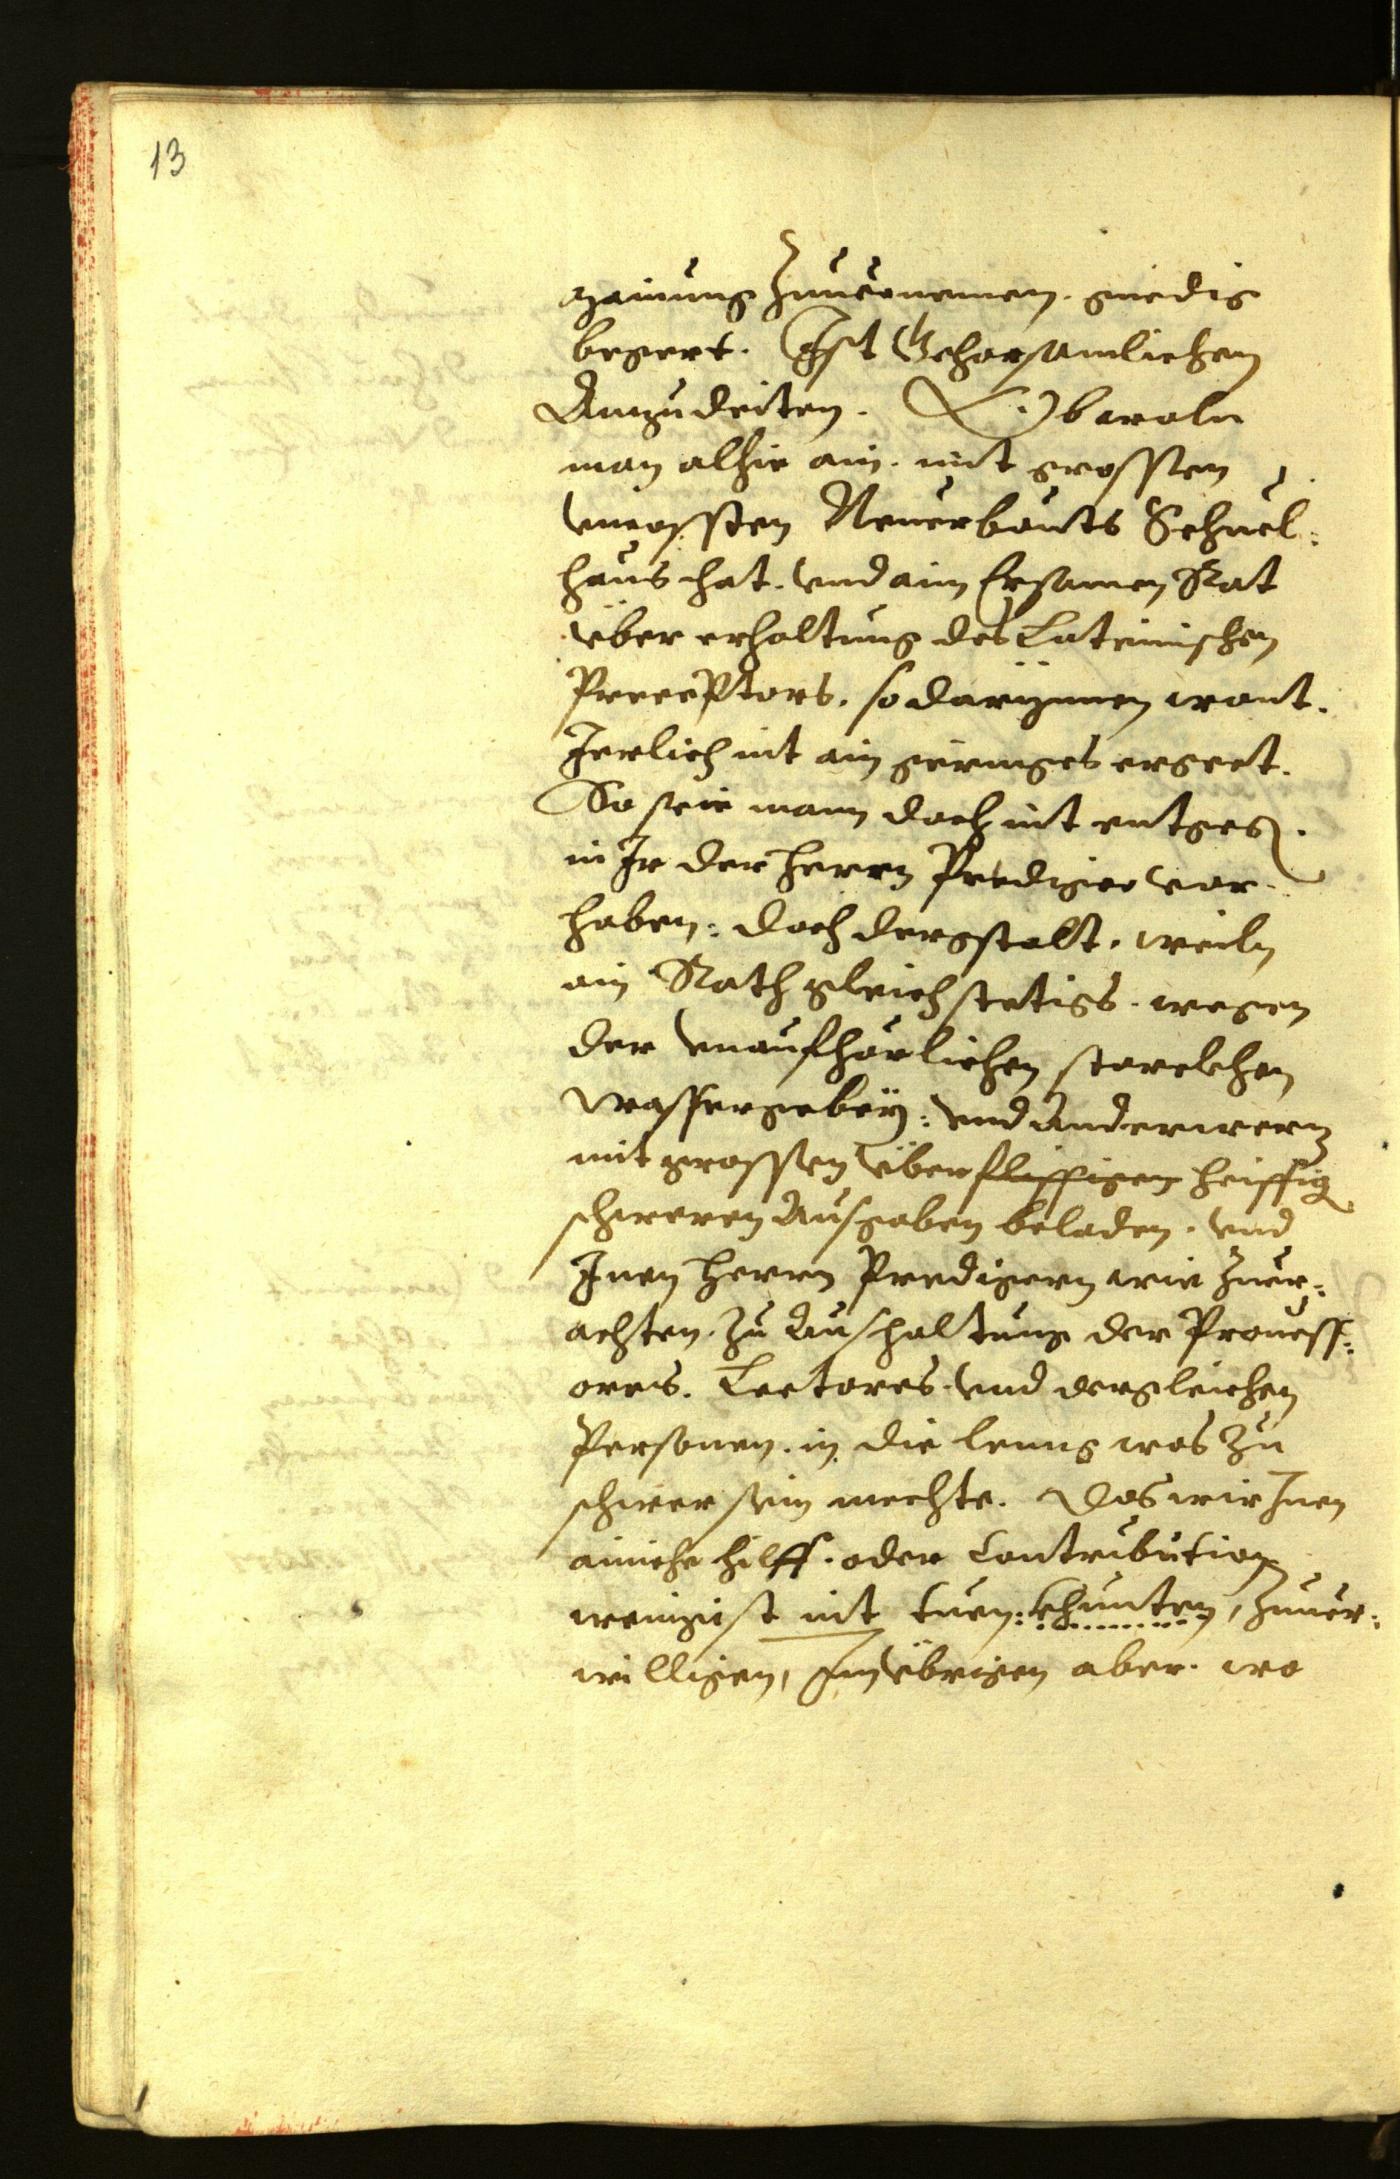 13
mainung Zuuernemen. gnedig
begert. Ist Gehorsamlichen
Anzudeiten. Obwoln
man alhie ain. mit grossen
vncossten Neuerbauts Schuel:
haus hat. vnd aim Ersamen Rat
über erhaltung des Lateinischen
PrecePtors. so darÿnnen wont.
Jerlich nit ain geringes ergeet.
So seie mann doch nit entgegen.
in Ir der herrn Prediger vor-
haben: doch dergstalt. weiln
ein Rath gleich stetigs. wegen
der vnaufhörlichen starckhen
Wassergebeÿ: vnd anderwerz
mit grossen überflissigen heiffig
schweren Ausgaben beladen. vnd
Inen herrn Predigern wie Zuer:
achten. Zu Aushaltung der Proueff:
ores. Lectores. vnd dergleichen
Personen. in die leung was Zu
schwer sein mechte. Das wir Inen
ainiche hilff. oder Contribution
wenigist nit tuen: khunten, Zuuer:
willigen, Im übrigen aber. wo